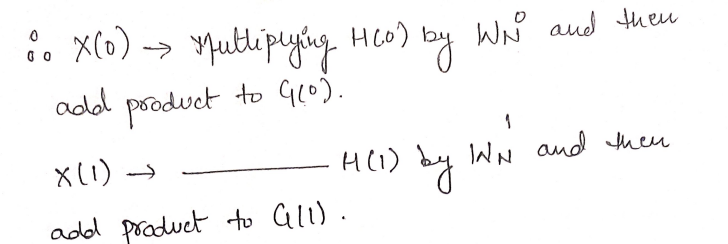 ∴ X(0) → Multiplying H(0) by W_N^0 and then
add product to G(0).
X(1) → ———— H(1) by W_N^1 and then
add product to G(1).